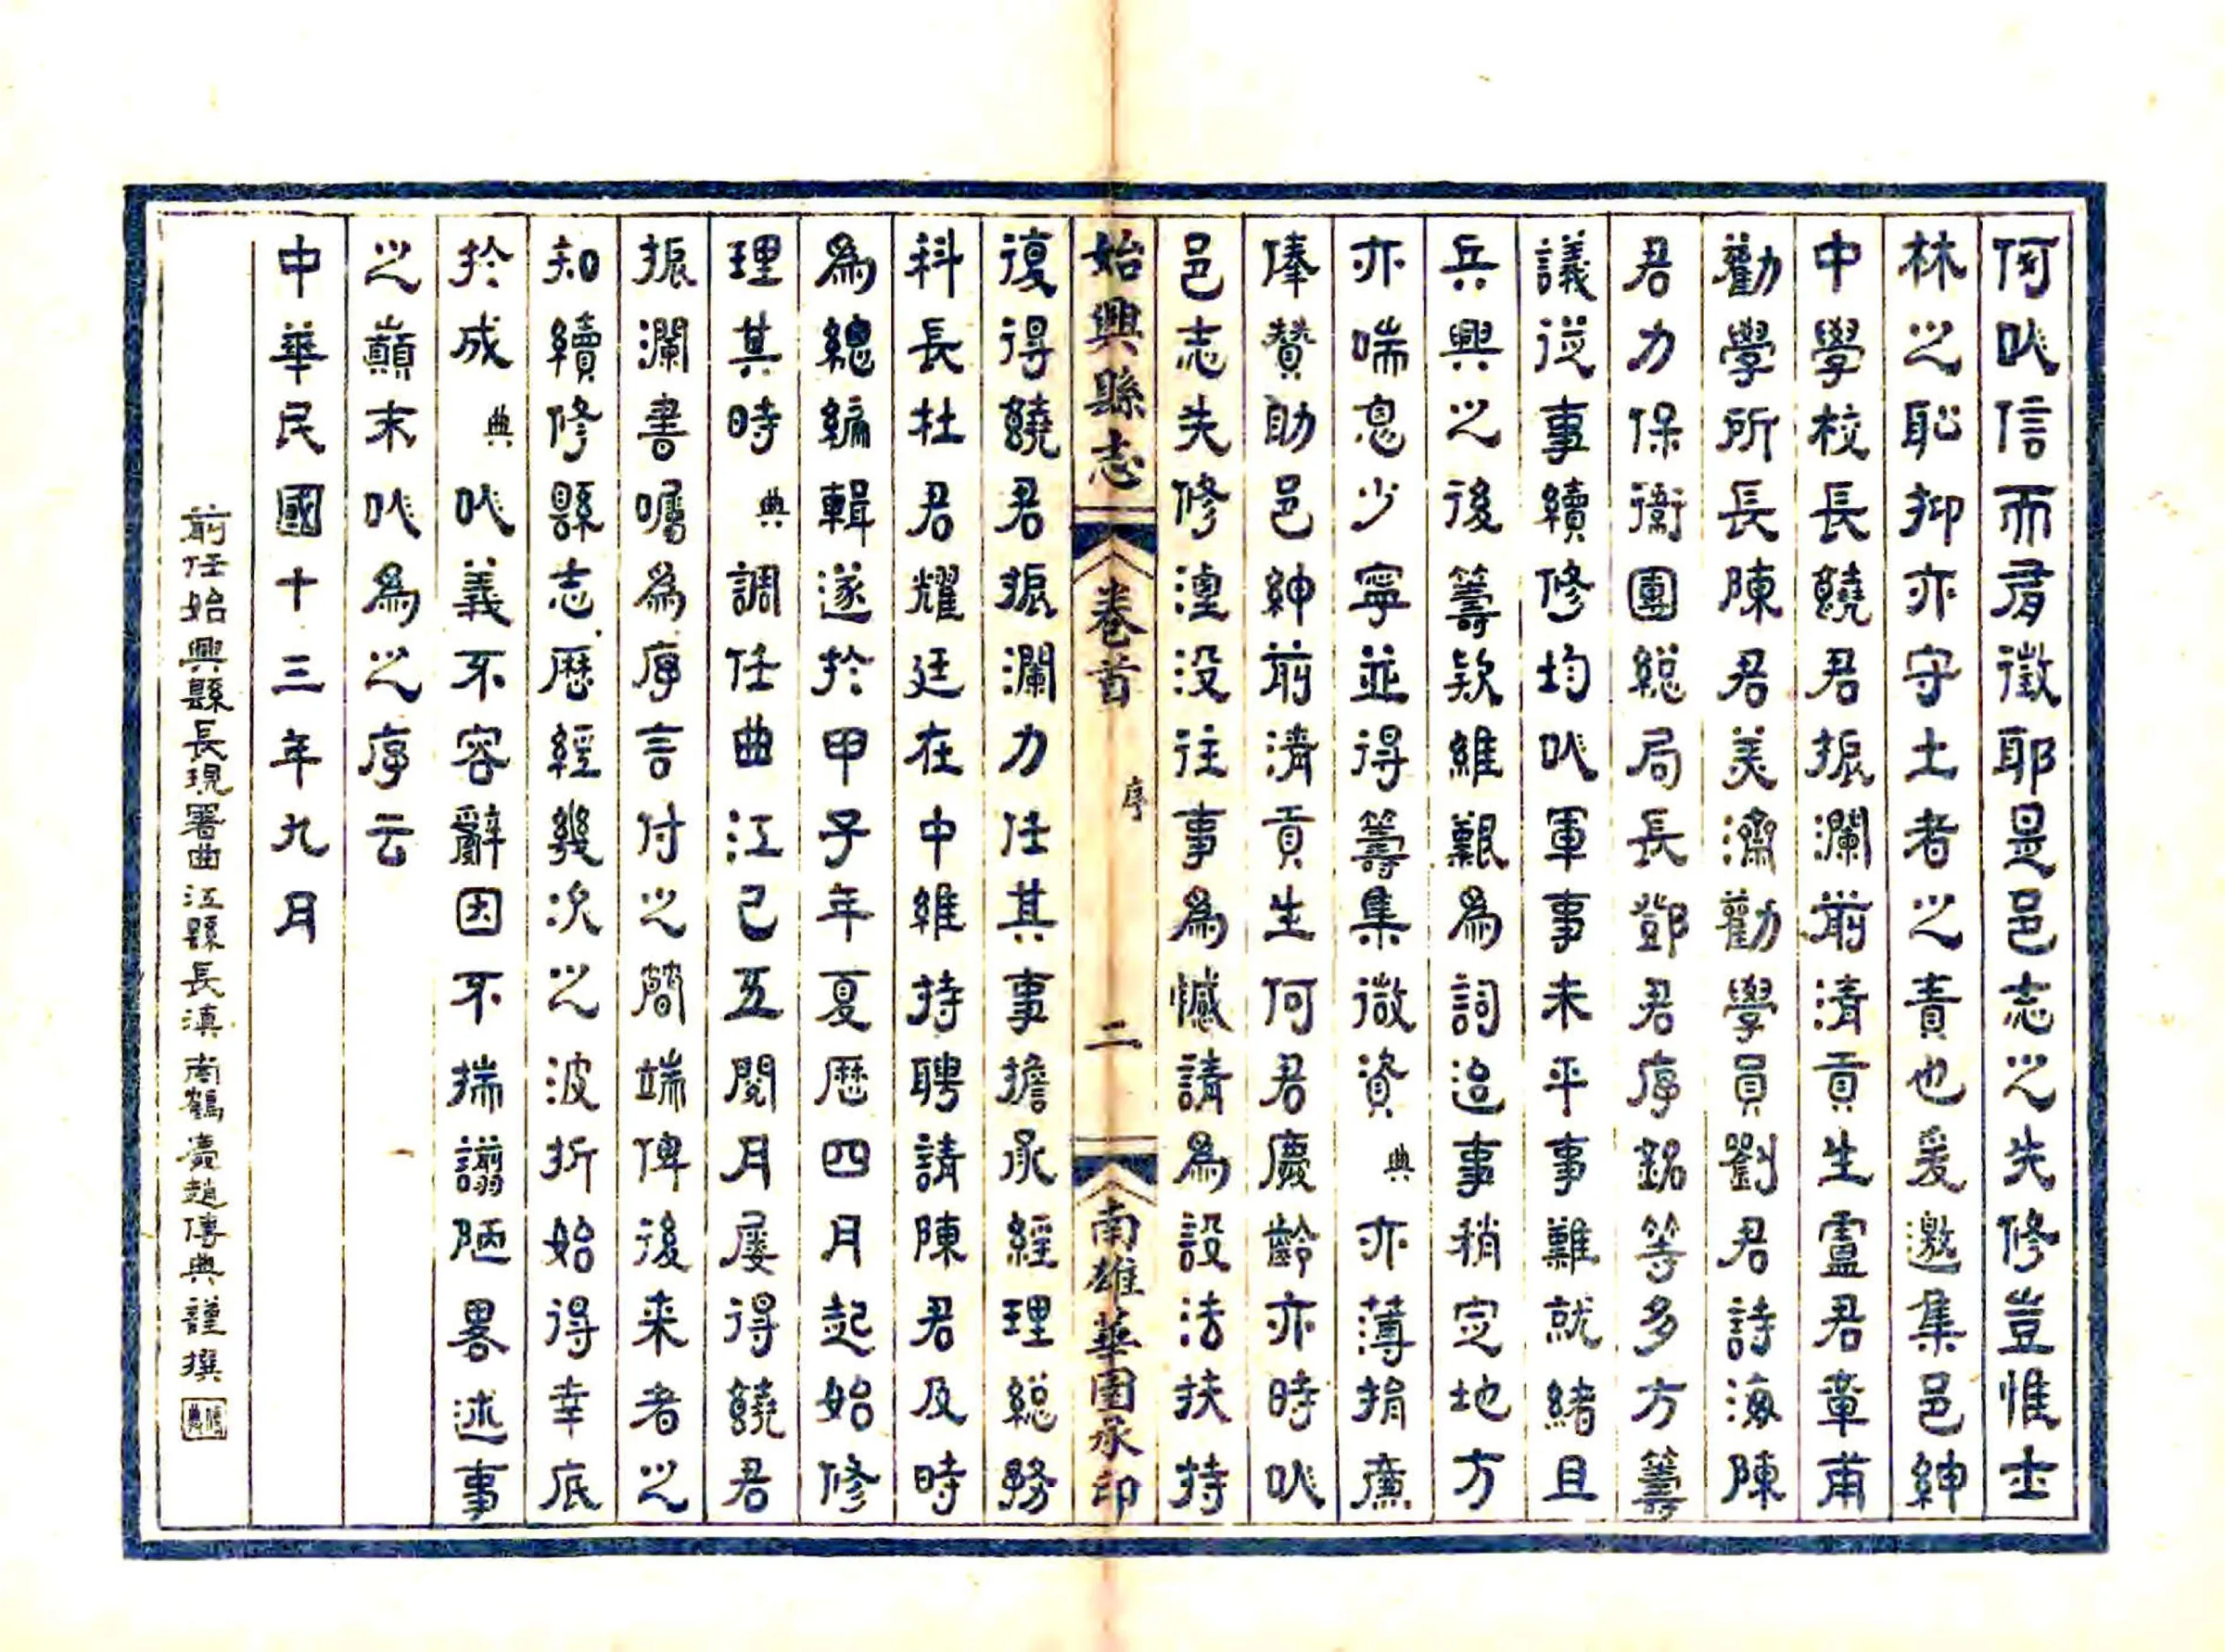 何㕥信而有徵耶是邑志之失修豈惟士
林之恥抑亦守土者之責也爰邀集邑紳
中學校長饒君振瀾前清貢生盧君章甫
勸學所長陳君美濟勸學員劉君詩海陳
君力保衛團総局長鄧君序銘等多方籌
議從事續修均㕥軍事未平事難就緒且
兵興之後籌欵維艱為詞迨事稍定地方
亦喘息少寧並得籌集微資典亦薄捐廉
俸贊助邑紳前清貢生何君慶齡亦時㕥
邑志失修湮没往事為憾請為設法扶持
始興縣志 卷首 序 二 南雄華國承印
復得饒君振瀾力任其事擔承經理総務
科長杜君耀廷在中維持聘請陳君及時
為總編輯遂於甲子年夏歷四月起始修
理其時典調任曲江已五閱月屢得饒君
振瀾書囑為序言付之簡端俾後来者之
知續修縣志歷經幾次之波折始得幸底
於成典㕥義不容辭因不揣謭陋畧述事
之巔末㕥為之序云
中華民國十三年九月
前任始興縣長現署曲江縣長滇南鶴慶趙傳典謹撰